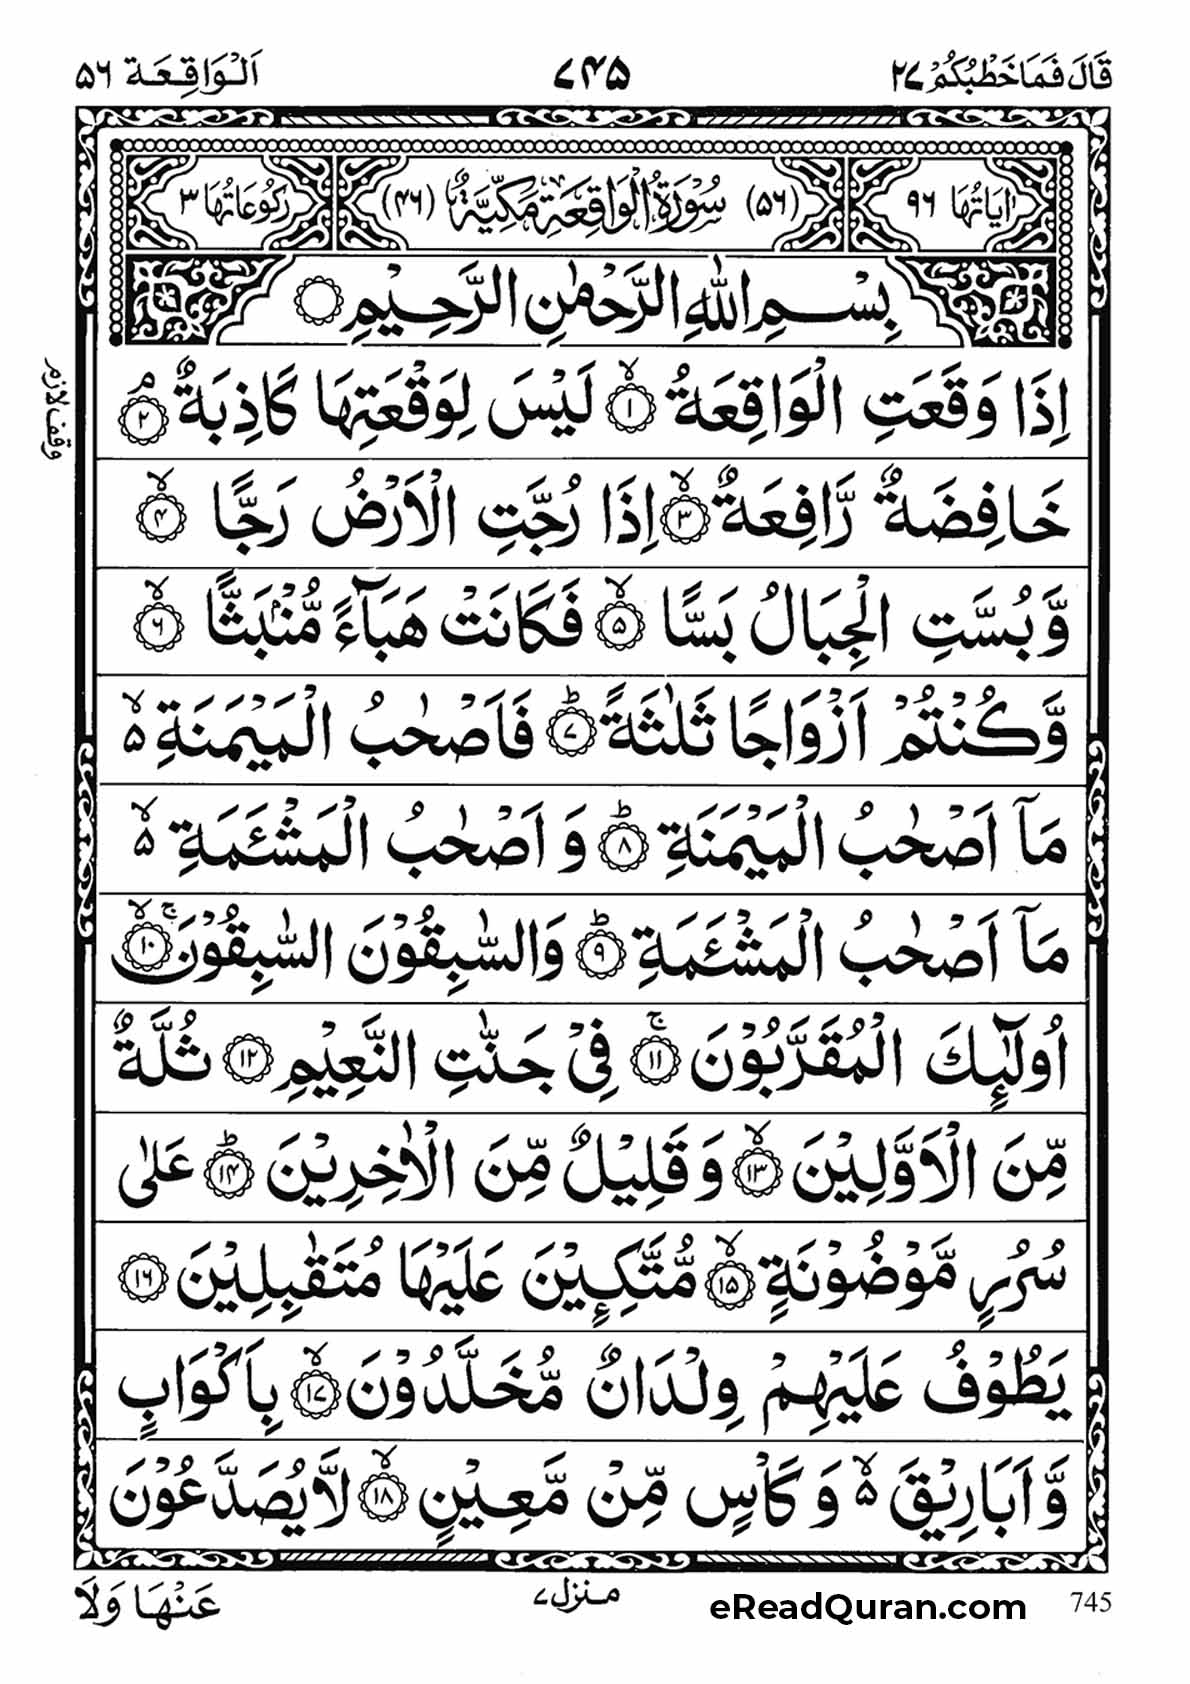 قَالَ فَمَا خَطْبُكُمْ ۲۷ ۷۴۵ اَلْوَاقِعَة ۵۶
اٰيَاتُهَا ۹۶ (۵۶) سُوْرَةُ الْوَاقِعَةِ مَكِّيَّةٌ (۴۶) رُكُوْعَاتُهَا ۳
بِسْمِ اللّٰهِ الرَّحْمٰنِ الرَّحِيْمِ ۝
اِذَا وَقَعَتِ الْوَاقِعَةُ ۙ﴿۱﴾ لَيْسَ لِوَقْعَتِهَا كَاذِبَةٌ ۘ﴿۲﴾
وقف لازم
خَافِضَةٌ رَّافِعَةٌ ۙ﴿۳﴾ اِذَا رُجَّتِ الْاَرْضُ رَجًّا ۙ﴿۴﴾
وَّبُسَّتِ الْجِبَالُ بَسًّا ۙ﴿۵﴾ فَكَانَتْ هَبَآءً مُّنْۢبَثًّا ۙ﴿۶﴾
وَّكُنْتُمْ اَزْوَاجًا ثَلٰثَةً ؕ﴿۷﴾ فَاَصْحٰبُ الْمَيْمَنَةِ ۙ۵
مَاۤ اَصْحٰبُ الْمَيْمَنَةِ ؕ﴿۸﴾ وَ اَصْحٰبُ الْمَشْـَٔمَةِ ۙ۵
مَاۤ اَصْحٰبُ الْمَشْـَٔمَةِ ؕ﴿۹﴾ وَالسّٰبِقُوْنَ السّٰبِقُوْنَ ۚۙ﴿۱۰﴾
اُولٰٓئِكَ الْمُقَرَّبُوْنَ ۚ﴿۱۱﴾ فِيْ جَنّٰتِ النَّعِيْمِ ﴿۱۲﴾ ثُلَّةٌ
مِّنَ الْاَوَّلِيْنَ ۙ﴿۱۳﴾ وَ قَلِيْلٌ مِّنَ الْاٰخِرِيْنَ ؕ﴿۱۴﴾ عَلٰى
سُرُرٍ مَّوْضُوْنَةٍ ۙ﴿۱۵﴾ مُّتَّكِـِٕيْنَ عَلَيْهَا مُتَقٰبِلِيْنَ ﴿۱۶﴾
يَطُوْفُ عَلَيْهِمْ وِلْدَانٌ مُّخَلَّدُوْنَ ۙ﴿۱۷﴾ بِاَكْوَابٍ
وَّ اَبَارِيْقَ ۙ۵ وَ كَاْسٍ مِّنْ مَّعِيْنٍ ۙ﴿۱۸﴾ لَّا يُصَدَّعُوْنَ
عَنْهَا وَلَا منزل ۷ eReadQuran.com 745